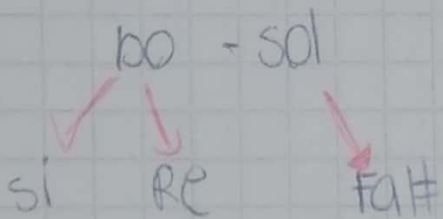 DO - SOl
Si Re Fa#